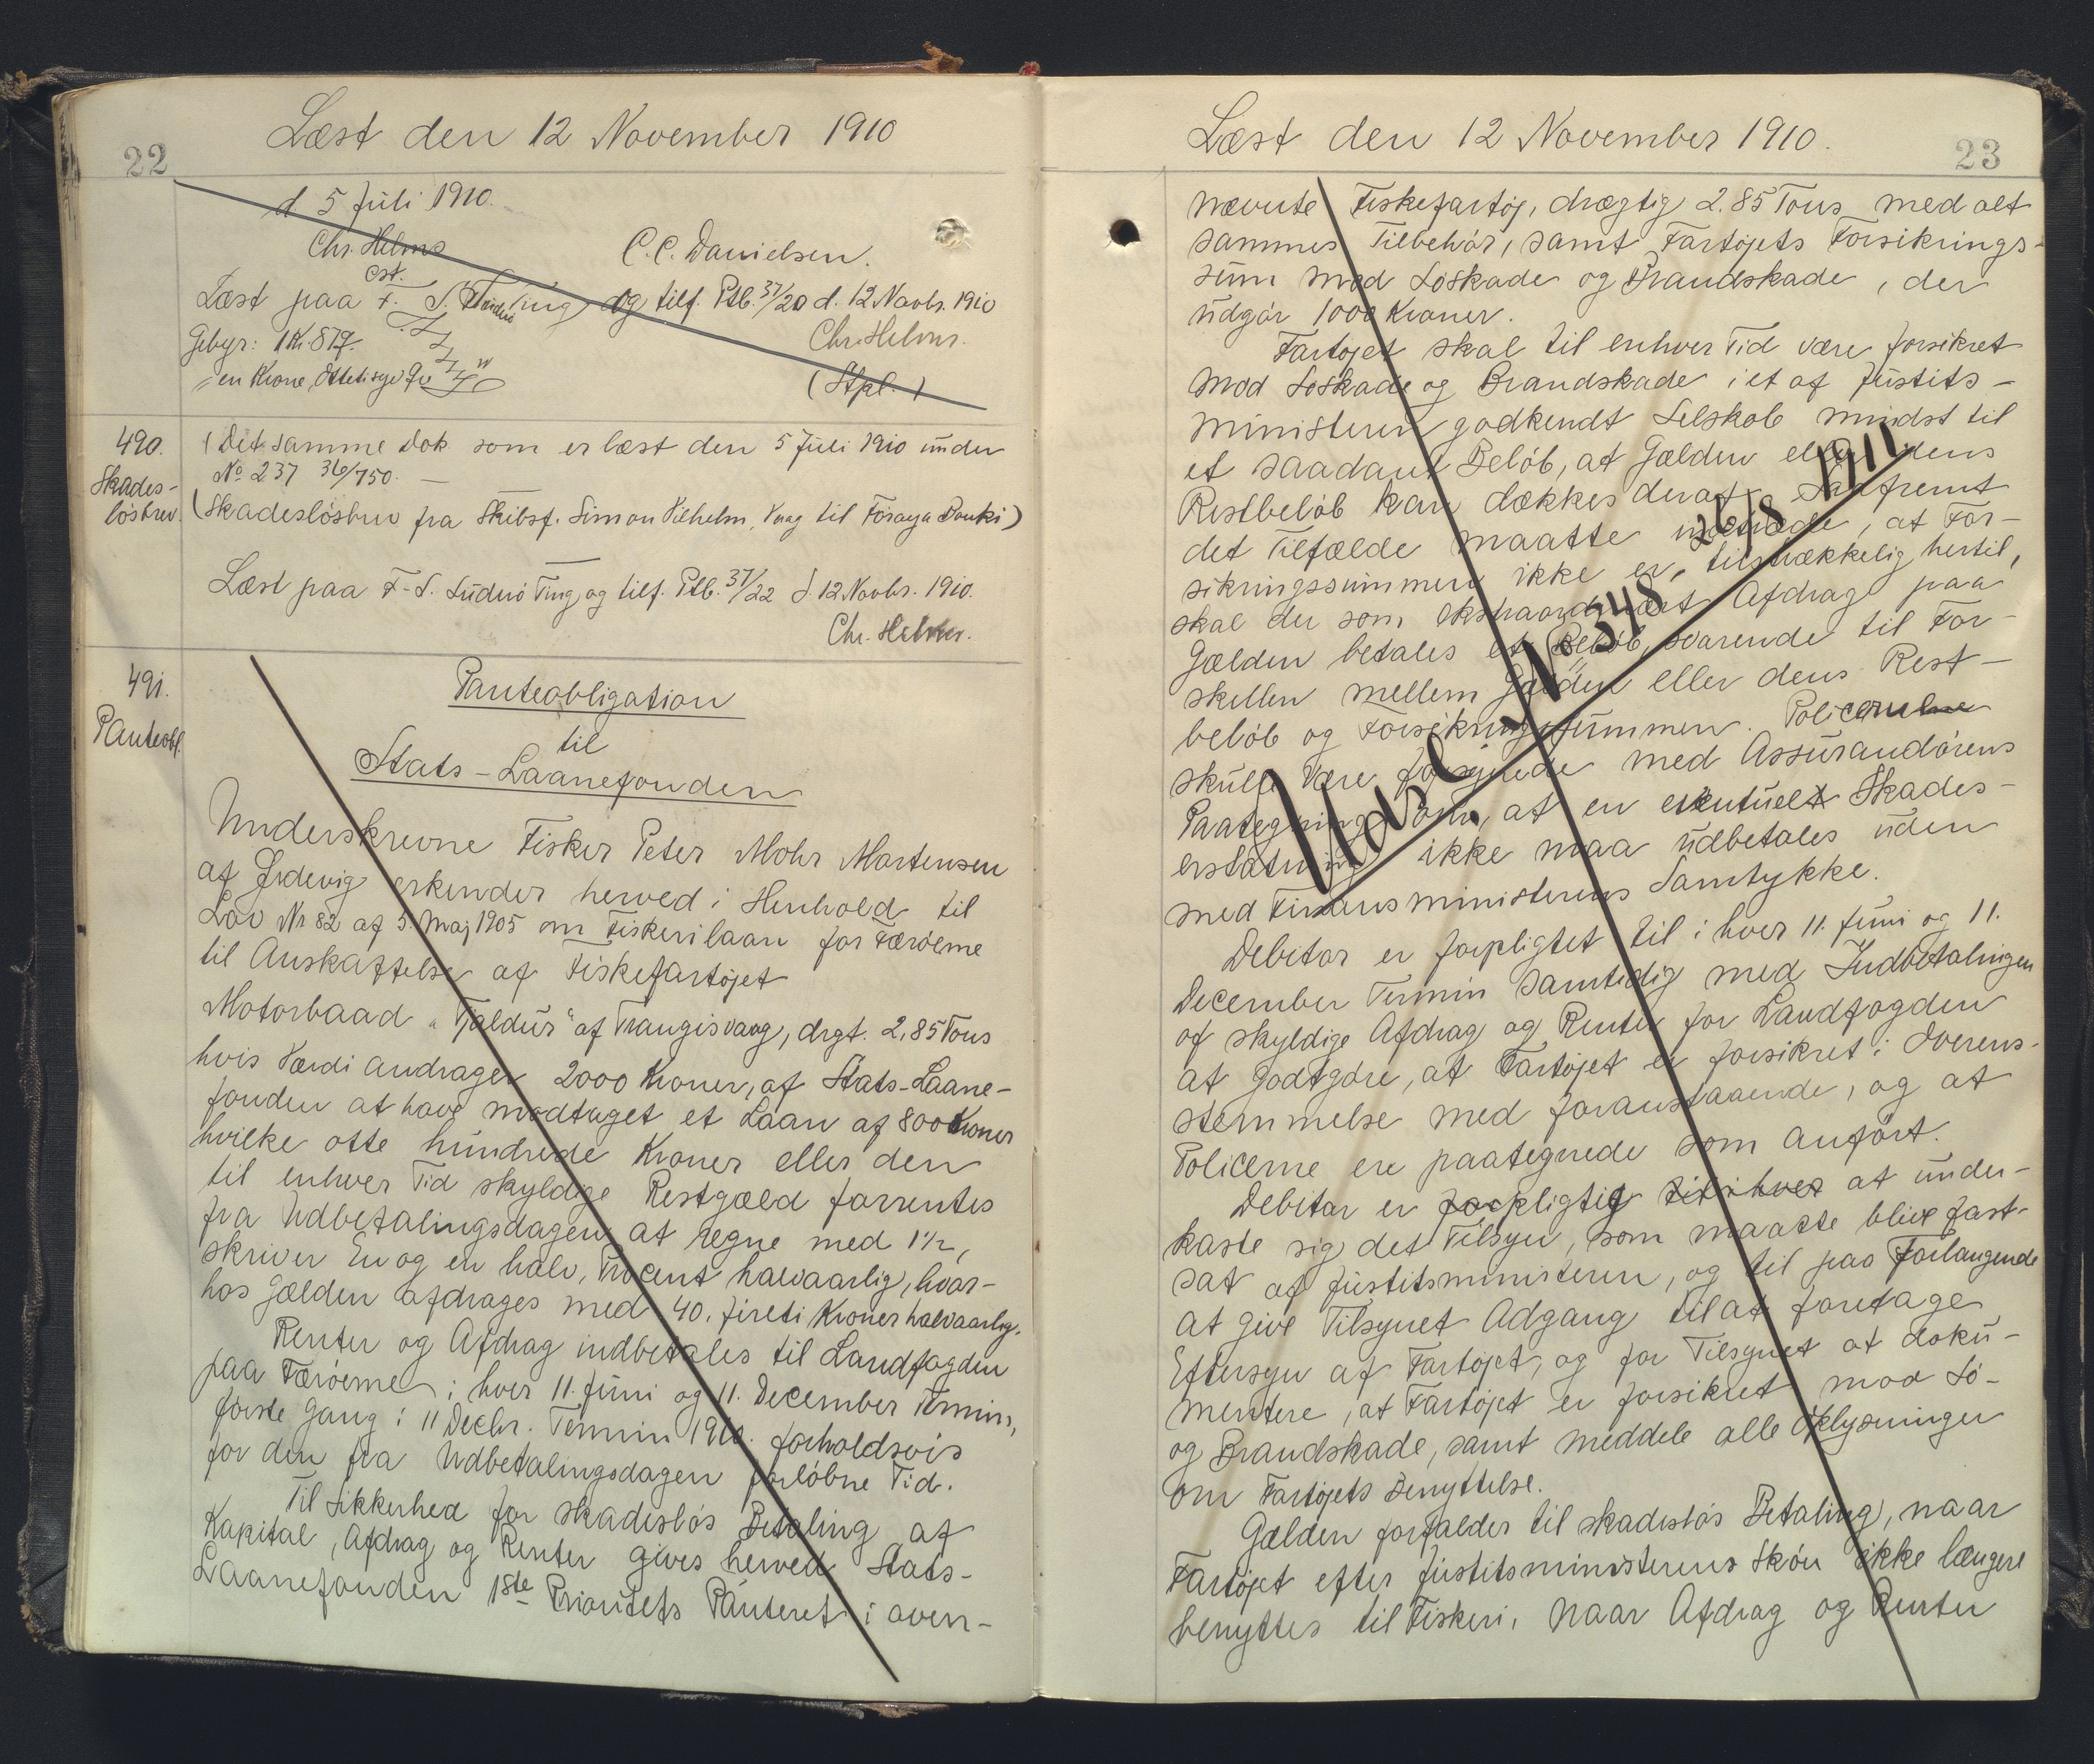 Læst den 12 November 1910
22
d. 5 Juli 1910.
Chr. Helms
cst.
C.C. Danielsen.
Læst paa F. S. Ting og tilf. Ptb. 37/20 d. 12 Novbr. 1910
Gebyr: 1 Kr. 87 Chr. Helms.
en Krone Ottetisyv (Stpl.)
490.
Skades-
løsbrev.
(Det samme Dok som er læst den 5 Juli 1910 under
No 237 36/750.
(Skadesløsbrev fra Skibsf. Simon Vilhelm, Vaag til Föroya Banki)
Læst paa F-S. Suderö Ting og tilf. Ptb. 37/22 d. 12 Novbr. 1910.
Chr. Helms.
491.
Panteobl.
Panteobligation
til
Stats-Laanefonden
Underskrevne Fisker Peter Mohr Mortensen
af Ördevig erkender herved i Henhold til
Lov Nr 82 af 5. Maj 1905 om Fiskerilaan for Færöerne
til Anskaffelse af Fiskefartøjet
Motorbaad "Tjaldur" af Trangisvaag, drgt. 2,85 Tons
hvis Værdi andrager 2000 Kroner, af Stats-Laane-
fonden at have modtaget et Laan af 800 Kroner
hvilke otte hundrede Kroner eller den
til enhver Tid skyldige Restgæld forrentes
fra Udbetalingsdagen at regne med 1½,
skriver En og en halv, Procent halvaarlig, hvor-
hos Gælden afdrages med 40. fireti Kroner halvaarlig.
Renter og Afdrag indbetales til Landfogden
paa Færöerne i hver 11. Juni og 11. December Termin,
første Gang i 11 Decbr. Termin 1910. forholdsvis
for den fra Udbetalingsdagen forløbne Tid.
Til Sikkerhed for skadesløs Betaling af
Kapital, Afdrag og Renter gives herved Stats-
Laanefonden 1ste Prioritets Panteret i oven-
Læst den 12 November 1910.
23
nævnte Fiskefartøj, drægtig 2.85 Tons med alt
sammes Tilbehör, samt Fartøjets Forsikrings-
sum mod Söskade og Brandskade, der
udgör 1000 Kroner.
Fartøjet skal til enhver Tid være forsikret
mod Söskade og Brandskade i et af Justits-
ministeren godkendt Selskab mindst til
et saadant Beløb, at Gælden eller dens
Restbeløb kan dækkes deraf. Saafremt
det Tilfælde maatte indtræde, at For-
sikringssummen ikke er tilstrækkelig hertil,
skal der som ekstraordinært Afdrag paa
Gælden betales et Beløb, svarende til For-
skellen mellem Gælden eller dens Rest-
beløb og Forsikringssummen. Policerne
skulle være forsynede med Assurandörens
Paategning om, at en eventuel Skades-
erstatning ikke maa udbetales uden
med Finansministerens Samtykke.
Udsl. C No 348 26/8 1911
Debitor er forpligtet til i hver 11. Juni og 11.
December Termin samtidig med Indbetalingen
af skyldige Afdrag og Renter for Landfogden
at godtgöre, at Fartøjet er forsikret i Overens-
stemmelse med foranstaaende, og at
Policerne ere paategnede som anført.
Debitor er forpligtig til i hver at under-
kaste sig det Tilsyn, som maatte blive fast-
sat af Justitsministeren, og til paa Forlangende
at give Tilsynet Adgang til at foretage
Eftersyn af Fartøjet, og for Tilsynet at doku-
mentere, at Fartøjet er forsikret mod Sö-
og Brandskade, samt meddele alle Oplysninger
om Fartøjets Benyttelse.
Gælden forfalder til skadesløs Betaling, naar
Fartøjet efter Justitsministerens Skön ikke længere
benyttes til Fiskeri, naar Afdrag og Renter